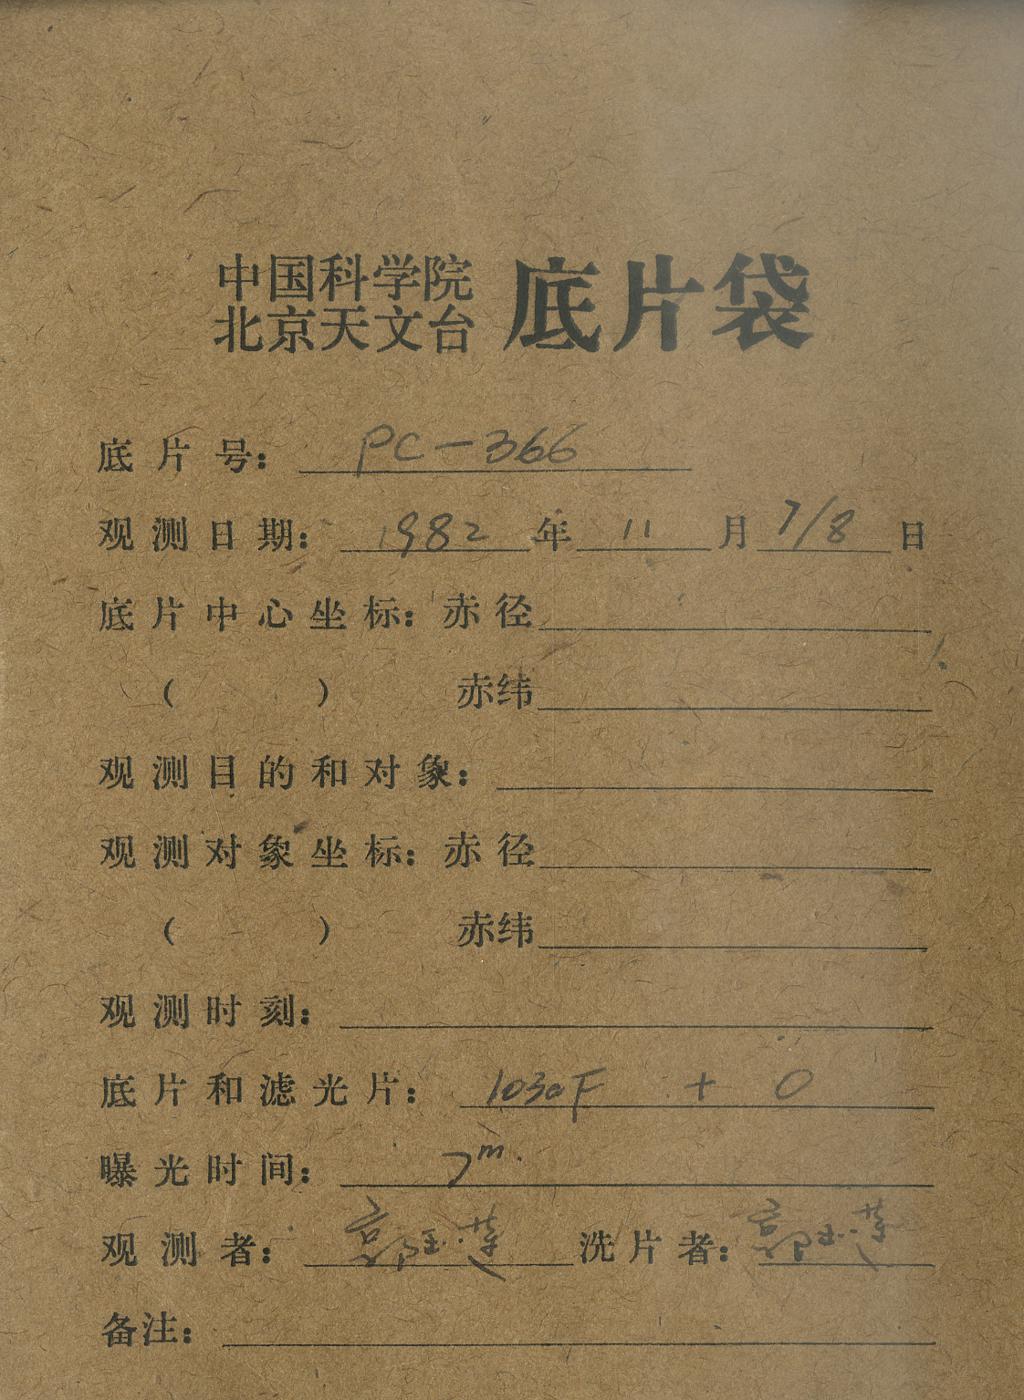 中国科学院
北京天文台 底片袋
底片号: PC-366
观测日期: 1982 年 11 月 7/8 日
底片中心坐标: 赤径
( ) 赤纬
观测目的和对象:
观测对象坐标: 赤径
( ) 赤纬
观测时刻:
底片和滤光片: 103aF + O
曝光时间: 7m.
观测者: 洗片者:
备注: